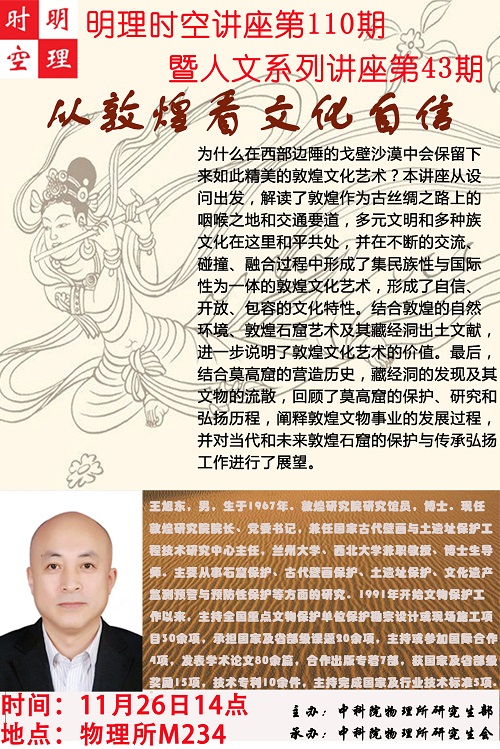 时明
空理
明理时空讲座第110期
暨人文系列讲座第43期
从敦煌看文化自信
为什么在西部边陲的戈壁沙漠中会保留下
来如此精美的敦煌文化艺术？本讲座从设
问出发，解读了敦煌作为古丝绸之路上的
咽喉之地和交通要道，多元文明和多种族
文化在这里和平共处，并在不断的交流、
碰撞、融合过程中形成了集民族性与国际
性为一体的敦煌文化艺术，形成了自信、
开放、包容的文化特性。结合敦煌的自然
环境、敦煌石窟艺术及其藏经洞出土文献，
进一步说明了敦煌文化艺术的价值。最后，
结合莫高窟的营造历史，藏经洞的发现及其
文物的流散，回顾了莫高窟的保护、研究和
弘扬历程，阐释敦煌文物事业的发展过程，
并对当代和未来敦煌石窟的保护与传承弘扬
工作进行了展望。
王旭东，男，生于1967年。敦煌研究院研究馆员，博士。现任
敦煌研究院院长、党委书记，兼任国家古代壁画与土遗址保护工
程技术研究中心主任，兰州大学、西北大学兼职教授、博士生导
师。主要从事石窟保护、古代壁画保护、土遗址保护、文化遗产
监测预警与预防性保护等方面的研究。1991年开始文物保护工
作以来，主持全国重点文物保护单位保护勘察设计或现场施工项
目30余项，承担国家及省部级课题20余项，主持或参加国际合作
4项，发表学术论文80余篇，合作出版专著7部，获国家及省部级
奖励15项，技术专利10余件，主持完成国家及行业技术标准5项。
时间：11月26日14点
地点：物理所M234
主办：中科院物理所研究生部
承办：中科院物理所研究生会